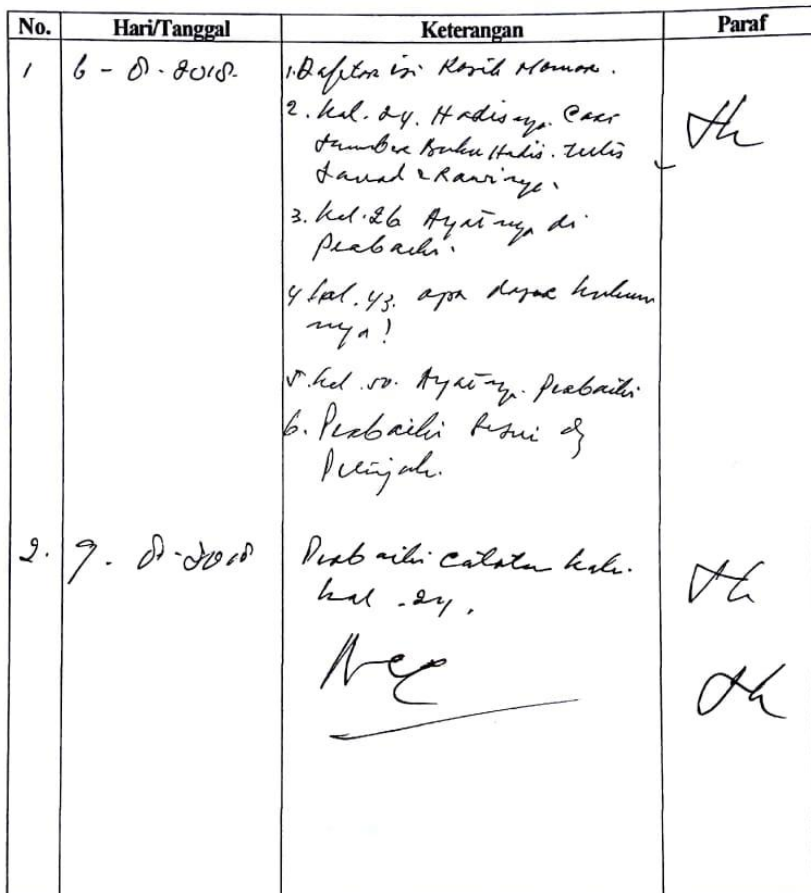 No. Hari/Tanggal Keterangan Paraf
1 6 - 8 - 2018. 1. Daftar isi Kasih Nomor.
2. hal. 24. Hadisnya. Cari
sumber Buku Hadis. tulis
sanad & Rawinya.
3. hal. 26 Ayatnya di
Perbaiki.
4 hal. 43. apa dasar hukum
nya!
5. hal. 50. Ayatnya. Perbaiki
6. Perbaiki sesuai dg
Petunjuk.
2. 9 - 8 - 2018 Perbaiki catatan kaki.
hal. 24.
Acc